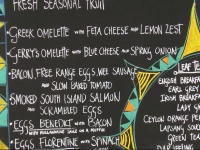 FRESH SEASONAL FRUIT
GREEK OMELETTE WITH FETA CHEESE AND LEMON ZEST
GERRY'S OMELETTE WITH BLUE CHEESE AND SPRING ONION
BACON FREE RANGE EGGS, WEE SAUSAGE
AND SLOW BAKED TOMATO
SMOKED SOUTH ISLAND SALMON
AND SCRAMBLED EGGS
EGGS BENEDICT WITH BACON
WITH HOLLANDAISE SAUCE ON A MUFFIN
EGGS FLORENTINE WITH SPINACH
LEAF TE
ENGLISH BREAKFAS
EARL GREY
IRISH BREAKFAST
CEYLON ORANGE PE
LAPSANG SOUC
GREEN TEA
DARJEELING